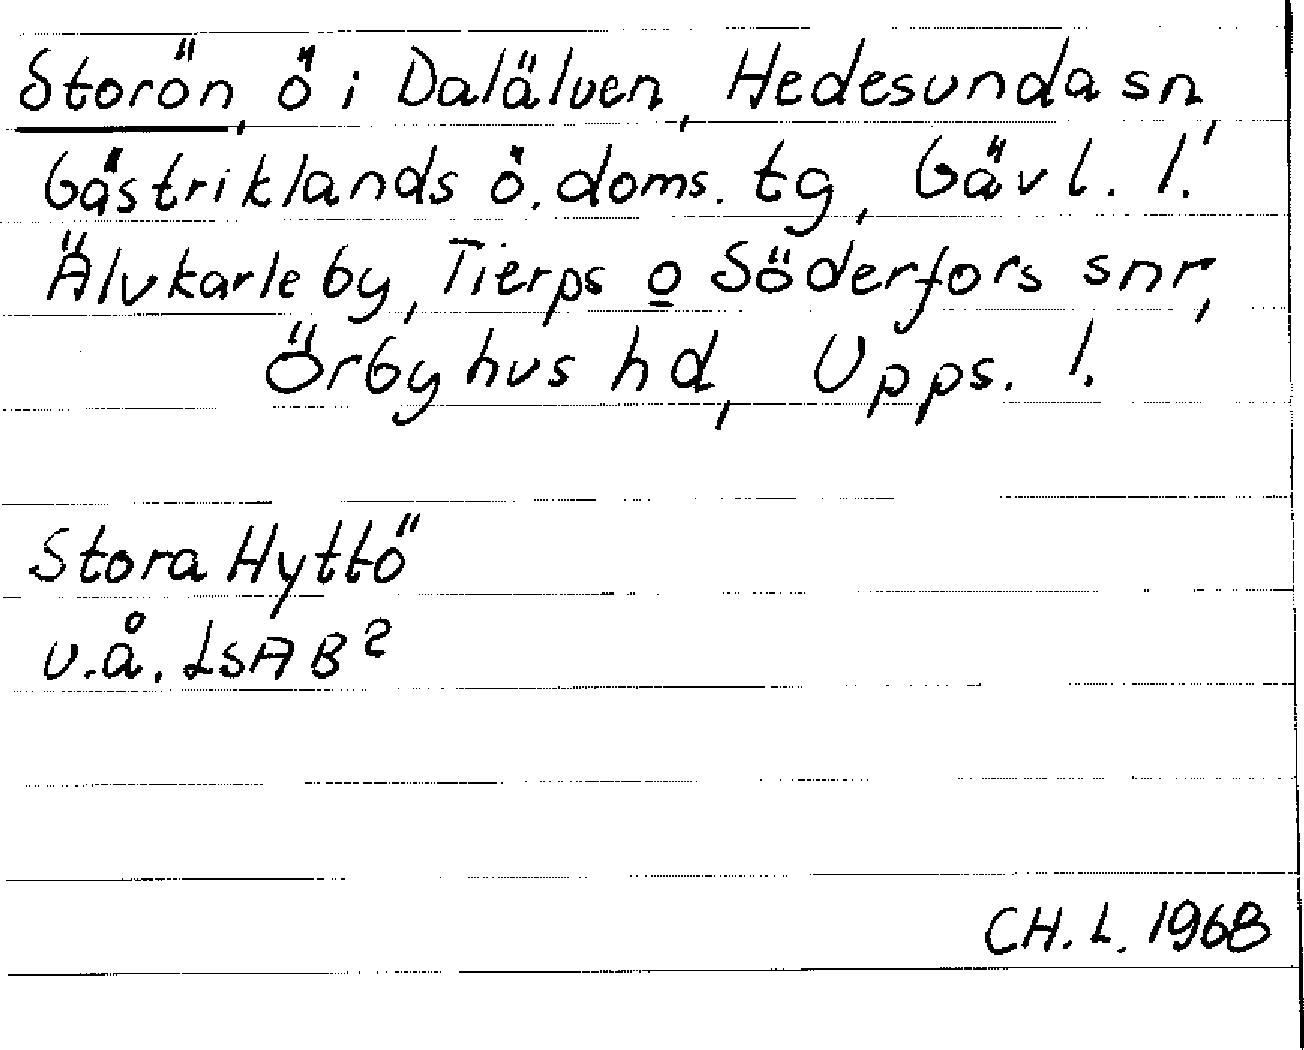 Storön, ö i Dalälven, Hedesunda sn,
Gästriklands ö. doms. tg, Gävl. l.
Älvkarleby, Tierps o Söderfors snr,
Örbyhus hd, Upps. l.
Stora Hyttö
u.å. LSA B2
CH. L. 1968